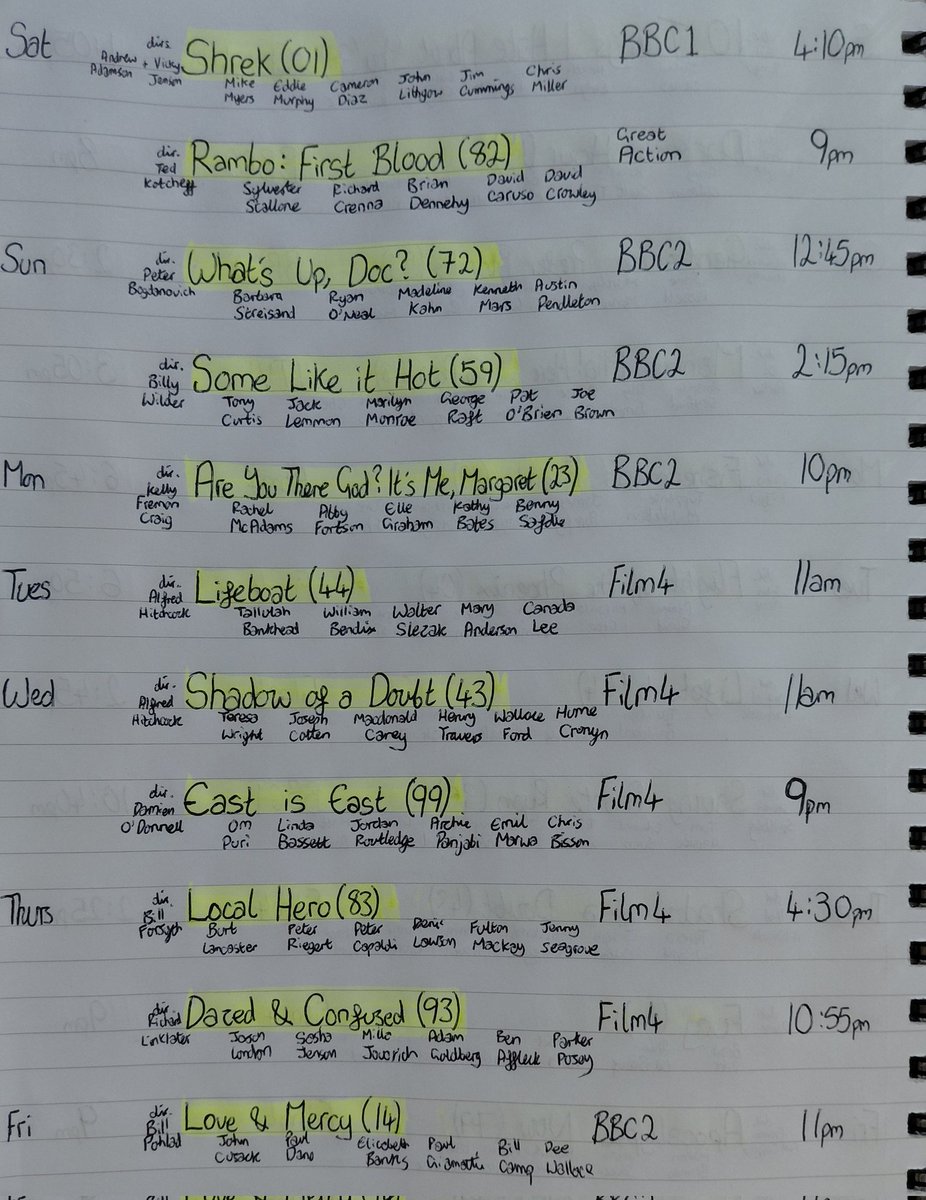 Sat dirs. Shrek (01) BBC1 4:10pm
Andrew + Vicky
Adamson Jenson
Mike Eddie Cameron John Jim Chris
Myers Murphy Diaz Lithgow Cummings Miller
dir. Rambo: First Blood (82) Great Action 9pm
Ted
Kotcheff
Sylvester Richard Brian David David
Stallone Crenna Dennehy Caruso Crowley
Sun dir. What's Up, Doc? (72) BBC2 12:45pm
Peter
Bogdanovich
Barbara Ryan Madeline Kenneth Austin
Streisand O'Neal Kahn Mars Pendleton
dir. Some Like it Hot (59) BBC2 2:15pm
Billy
Wilder
Tony Jack Marilyn George Pat Joe
Curtis Lemmon Monroe Raft O'Brien Brown
Mon dir. Are You There God? It's Me, Margaret (23) BBC2 10pm
Kelly
Fremon
Craig
Rachel Abby Elle Kathy Benny
McAdams Fortson Graham Bates Safdie
Tues dir. Lifeboat (44) Film4 11am
Alfred
Hitchcock
Tallulah William Walter Mary Canada
Bankhead Bendix Slezak Anderson Lee
Wed dir. Shadow of a Doubt (43) Film4 11am
Alfred
Hitchcock
Teresa Joseph Macdonald Henry Wallace Hume
Wright Cotten Carey Travers Ford Cronyn
dir. East is East (99) Film4 9pm
Damien
O'Donnell
Om Linda Jordan Archie Emil Chris
Puri Bassett Routledge Panjabi Marwa Bisson
Thurs dir. Local Hero (83) Film4 4:30pm
Bill
Forsyth
Burt Peter Peter Denis Fulton Jenny
Lancaster Riegert Capaldi Lawson Mackay Seagrove
dir. Dazed & Confused (93) Film4 10:55pm
Richard
Linklater
Jason Sasha Milla Adam Ben Parker
London Jenson Jovovich Goldberg Affleck Posey
Fri dir. Love & Mercy (14) BBC2 11pm
Bill
Pohlad
John Paul Elizabeth Paul Bill Dee
Cusack Dano Banks Giamatti Camp Wallace